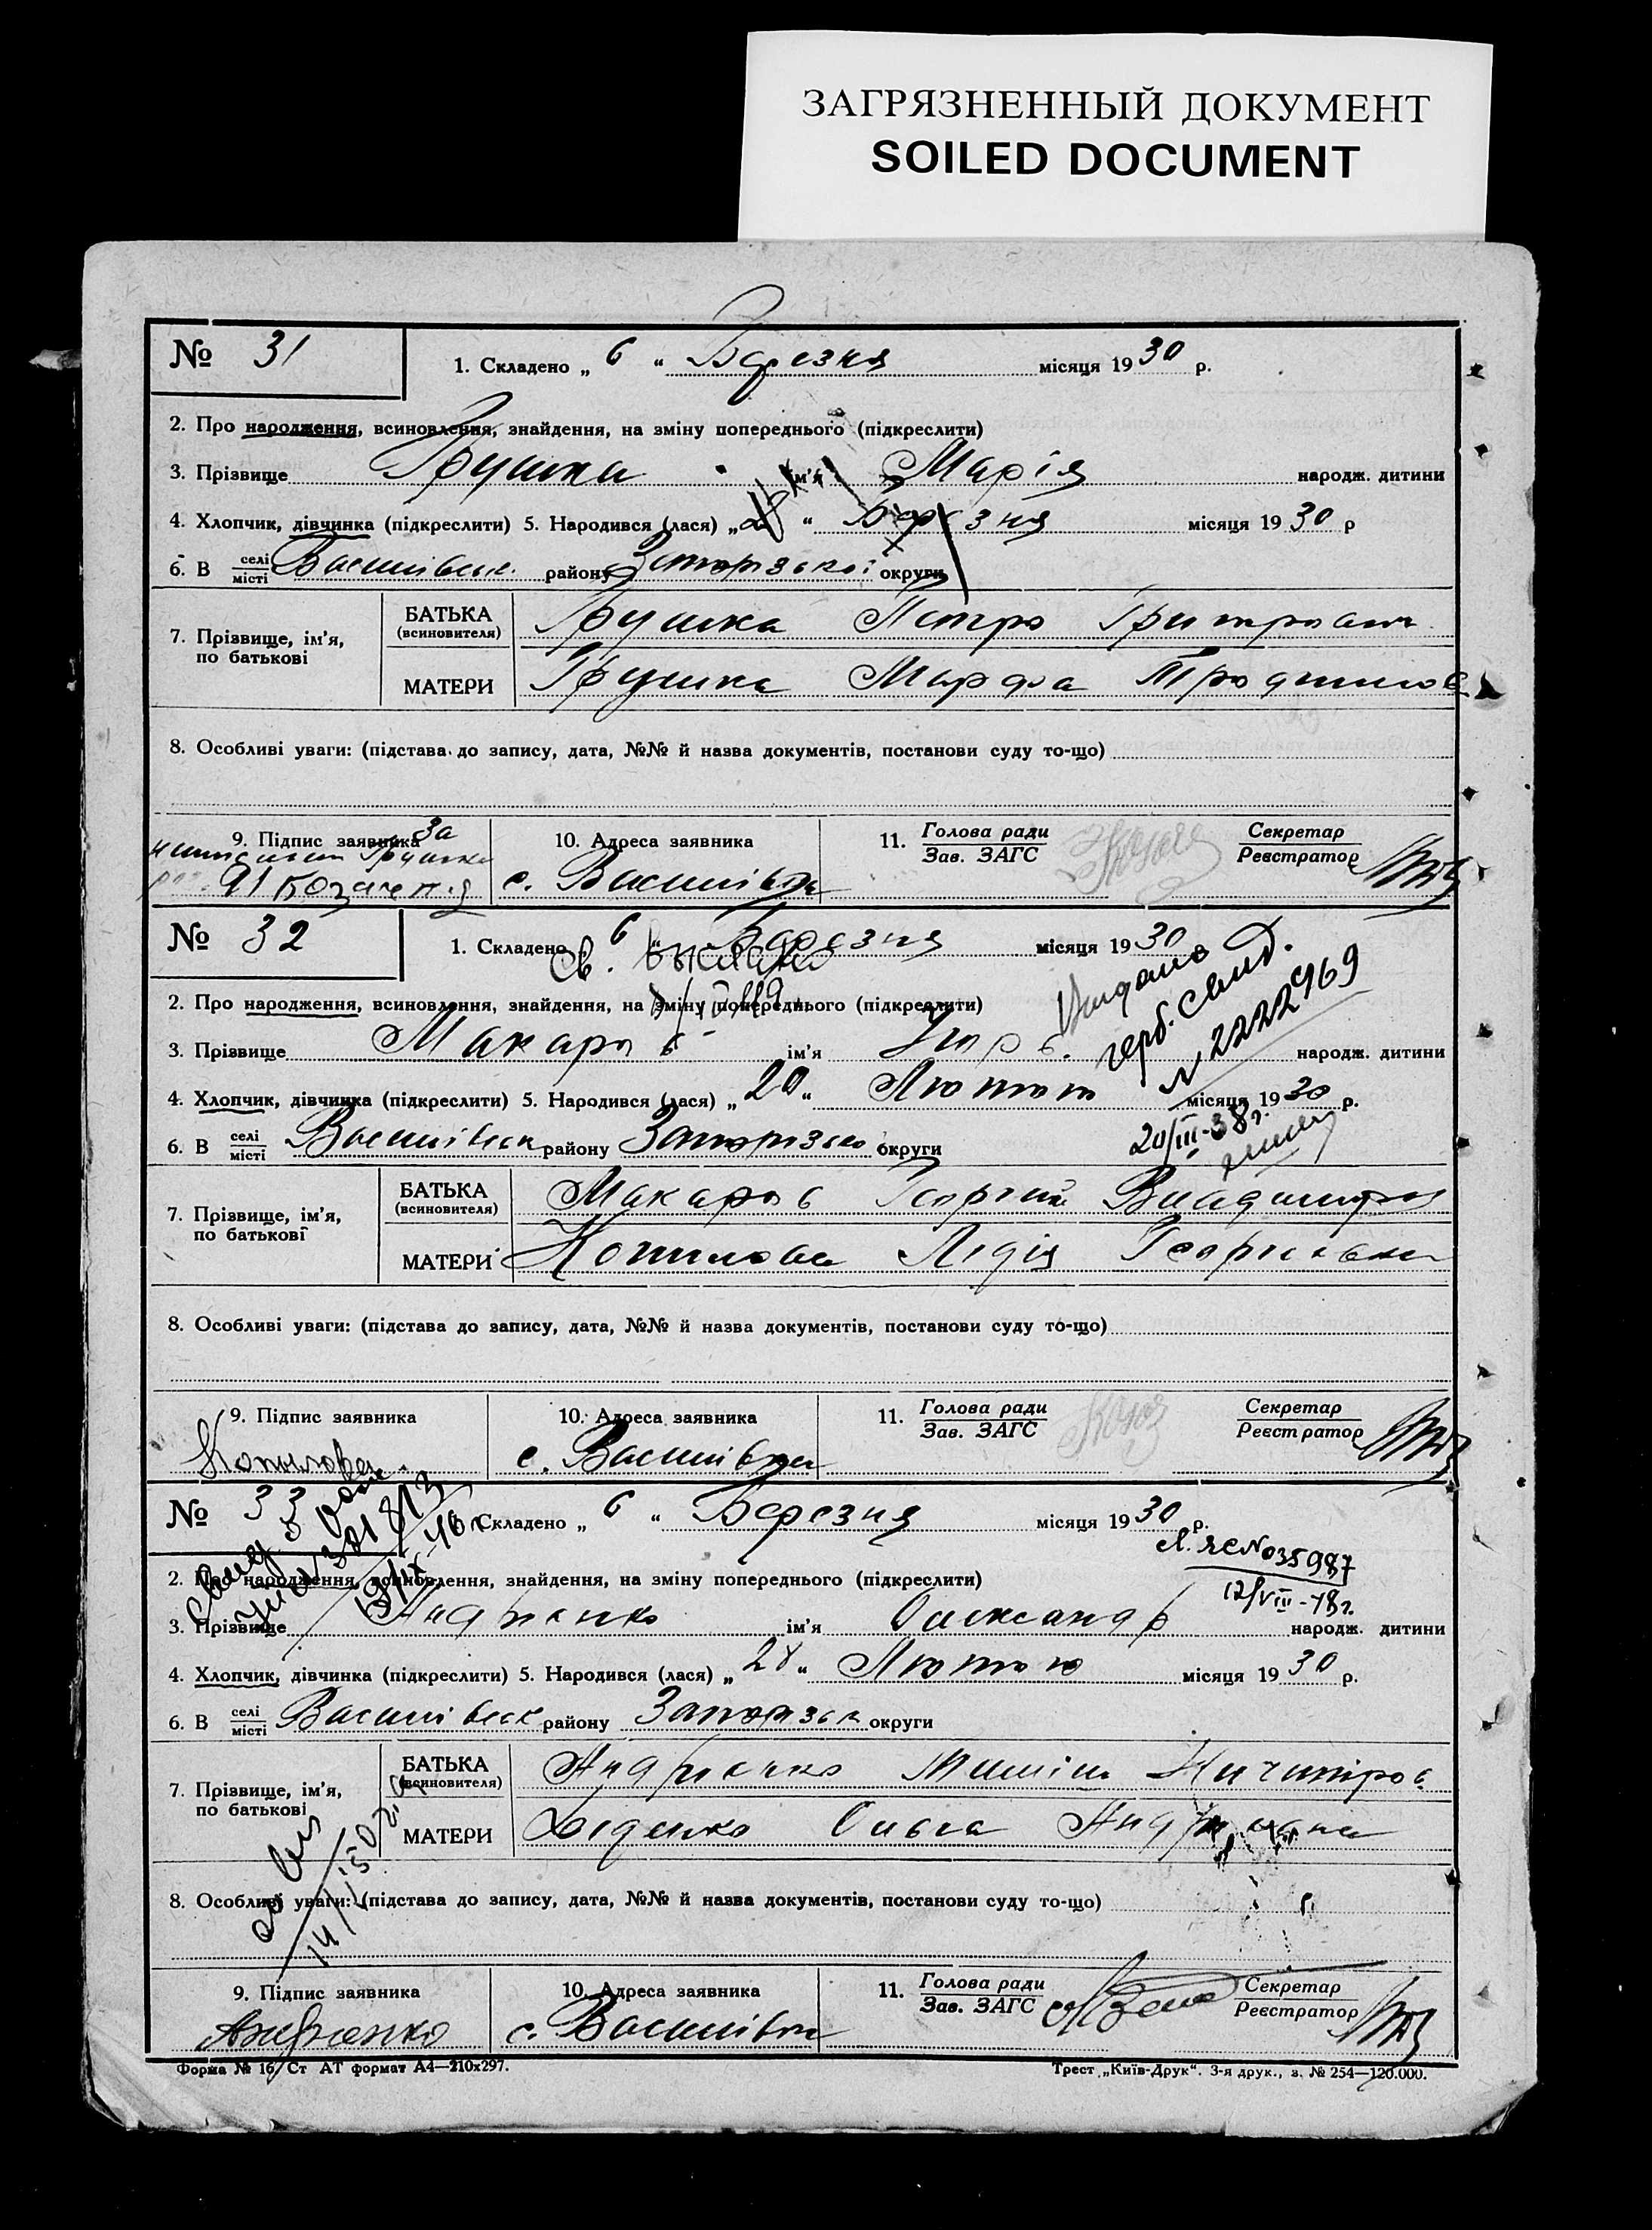 ЗАГРЯЗНЕННЫЙ ДОКУМЕНТ
SOILED DOCUMENT
№ 31
1. Складено „ 6 “ Березня місяця 1930 р.
2. Про народження, всиновлення, знайдення, на зміну попереднього (підкреслити)
3. Прізвище Грушка ім'я Марія народж. дитини
4. Хлопчик, дівчинка (підкреслити) 5. Народився (лася) „ “ Березня місяця 1930 р
6. В селі місті Василівськ. району Запорізької округи
7. Прізвище, ім'я, по батькові
БАТЬКА (всиновителя) Грушка Петро
МАТЕРИ Грушка Марфа
8. Особливі уваги: (підстава до запису, дата, №№ й назва документів, постанови суду то-що)
9. Підпис заявника За
Грушка
10. Адреса заявника
с. Василівка
11. Голова ради Зав. ЗАГС
Секретар Реєстратор
№ 32
1. Складено „ 6 “ Березня місяця 1930
Св.
Видано
герб. свид.
N 2222969
20/III-38г.
2. Про народження, всиновлення, знайдення, на зміну попереднього (підкреслити)
3. Прізвище Макаров ім'я народж. дитини
4. Хлопчик, дівчинка (підкреслити) 5. Народився (лася) „ 20 “ Лютого місяця 1930 р.
6. В селі місті Василівськ району Запорізько округи
7. Прізвище, ім'я, по батькові
БАТЬКА (всиновителя) Макаров Георгий Владимиров
МАТЕРИ Копилова Лідія Георгиевна
8. Особливі уваги: (підстава до запису, дата, №№ й назва документів, постанови суду то-що)
9. Підпис заявника
Копылова
10. Адреса заявника
с. Василівка
11. Голова ради Зав. ЗАГС
Секретар Реєстратор
№ 33
Складено „ 6 “ Березня місяця 1930 р.
035987
12/VIII-78г.
2. Про народження, всиновлення, знайдення, на зміну попереднього (підкреслити)
3. Прізвище Андриенко ім'я Олександр народж. дитини
4. Хлопчик, дівчинка (підкреслити) 5. Народився (лася) „ 28 “ Лютого місяця 1930 р.
6. В селі місті Василівськ району Запорізьк округи
7. Прізвище, ім'я, по батькові
БАТЬКА (всиновителя) Андриенко
МАТЕРИ Діденко Ольга
8. Особливі уваги: (підстава до запису, дата, №№ й назва документів, постанови суду то-що)
9. Підпис заявника
Андриенко
10. Адреса заявника
с. Василівка
11. Голова ради Зав. ЗАГС
Секретар Реєстратор
Форма № 16/Ст АТ формат А4—210х297.
Трест „Київ-Друк“. 3-я друк., з. № 254—120.000.